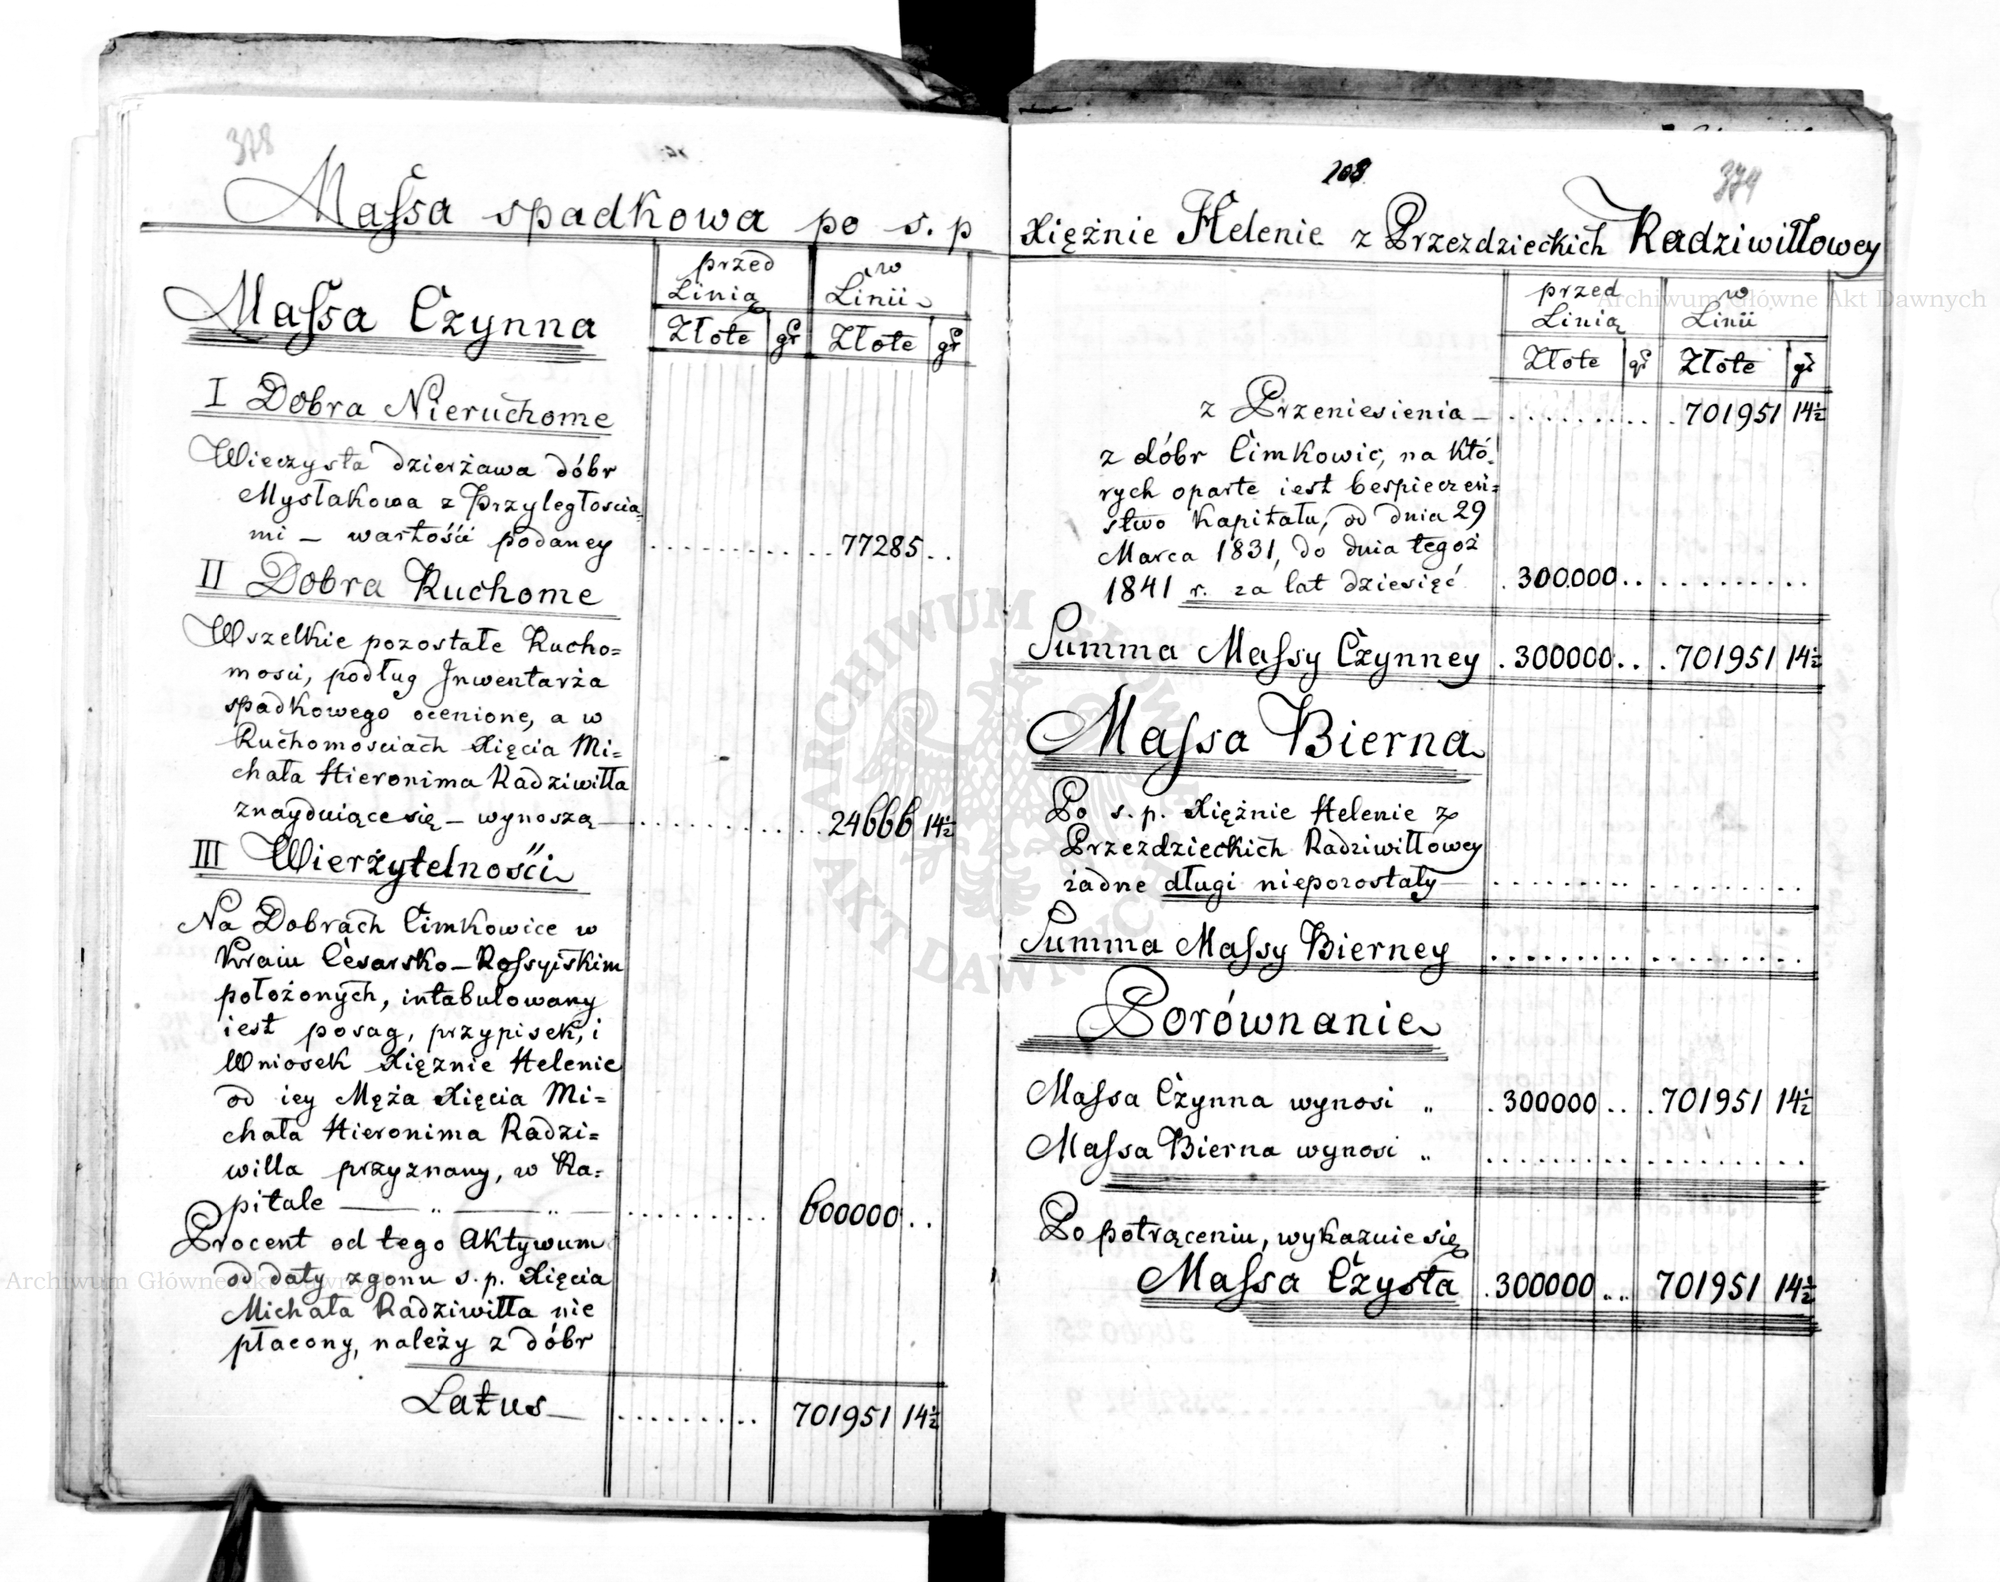 378
Massa spadkowa po s. p
Massa Czynna
przed Linią
w Linii
Złote gr Złote gr
I Dobra Nieruchome
Wieczysta dzierżawa dóbr
Mysłakowa z Przyległościa=
mi – wartości podaney . . . . . . . . . . . . 77285 . .
II Dobra Ruchome
Wszelkie pozostałe Rucho=
mości, podług Inwentarża
spadkowego ocenione, a w
Ruchomościach Xięcia Mi=
chała Hieronima Radziwiłła
znayduiące się – wynoszą . . . . . . . . . . . . 24666 14½
III Wierżytelności
Na Dobrach Cimkowice w
Kraiu Cesarsko – Rossyiskim
położonych, intabulowany
iest posag, przypisek, i
Wniosek Xięznie Helenie
od iey Męża Xięcia Mi=
chała Hieronima Radzi=
wiłła przyznany, w Ka=
pitale — „ — „ — . . . . . . . . . . 600000 . .
Procent od tego Aktywum
od daty zgonu s. p. Xięcia
Michała Radziwiłła nie
płacony, należy z dóbr
Latus — . . . . . . . . . 701951 14½
208
379
Xiężnie Helenie z Przezdzieckich Radziwiłłowey
przed Linią
w Linii
Złote gr Złote gr
z Przeniesienia – . . . . . . . . . . 701951 14½
z dóbr Cimkowic, na któ=
rych oparte iest bespieczeń=
stwo Kapitału, od dnia 29
Marca 1831, do dnia tegoż
1841 r. za lat dziesięć . 300.000 . . . . . . . . . . .
Summa Massy Czynney . 300000 . . . 701951 14½
Massa Bierna
Po s. p. Xiężnie Helenie z
Przezdzieckich Radziwiłłowey
żadne długi niepozostały — . . . . . . . . . . . . . . . .
Summa Massy Bierney . . . . . . . . . . . . . . . .
Porównanie
Massa Czynna wynosi „ . 300000 . . . 701951 14½
Massa Bierna wynosi „ . . . . . . . . . . . . . . . .
Po potrąceniu, wykazuie się
Massa Czysta . 300000 . . . 701951 14½
Archiwum Główne Akt Dawnych
Archiwum Główne Akt Dawnych
ARCHIWUM GŁÓWNE AKT DAWNYCH